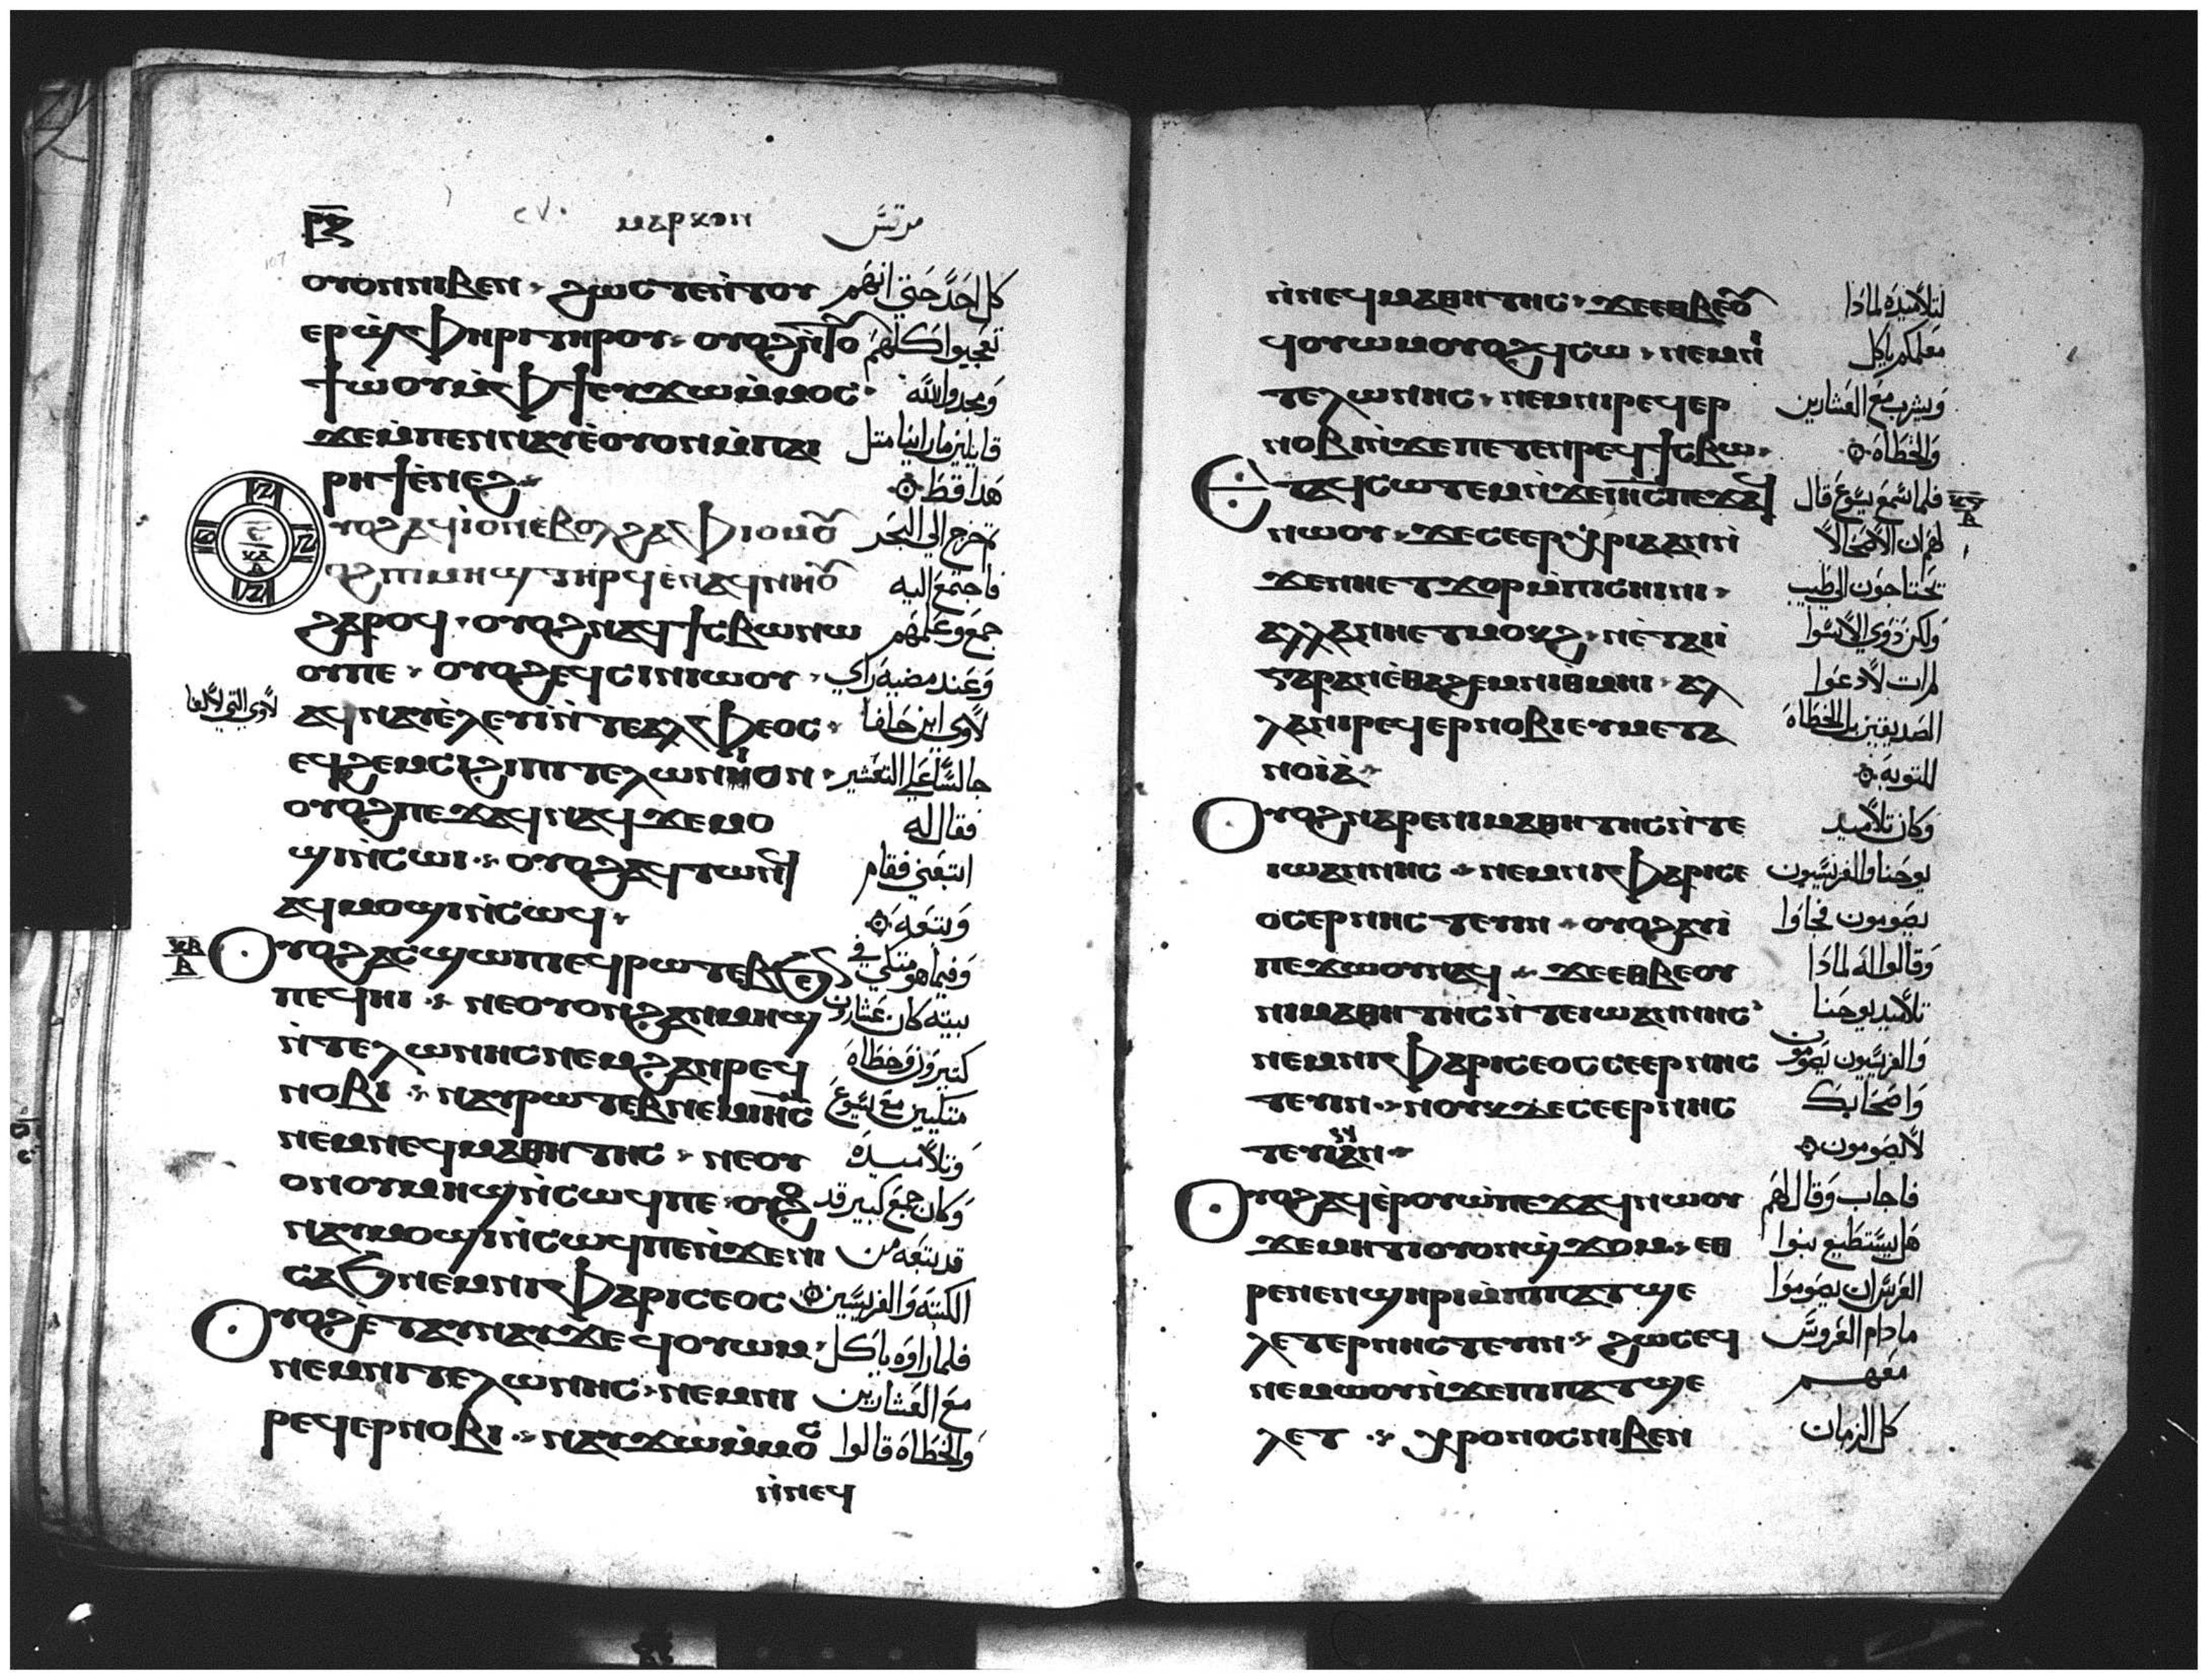 ⲣⲍ ⲙⲁⲣⲕⲟⲛ مرقس
ⲟⲩⲟⲛⲛⲓⲃⲉⲛ ϩⲱⲥⲧⲉⲛ̀ⲧⲟⲩ كل احد حتى انهم
ⲉⲣϣ̀ⲫⲏⲣⲓⲧⲏⲣⲟⲩ ⲟⲩⲟϩⲛ̀ⲧⲟⲩ تعجبوا كلهم
ϯⲱ̀ⲟⲩⲙ̀ⲫϯⲉⲩϫⲱⲙ̀ⲙⲟⲥ ومجدوا الله
ϫⲉⲙ̀ⲡⲉⲛⲛⲁⲩⲉ̀ⲟⲩⲟⲛⲙ̀ⲡⲁⲓ قايلين ما راينا متل
ⲣⲏϯⲉ̀ⲛⲉϩ هدا قط
ⲟⲩⲟϩⲁϥⲓ̀ⲟⲛⲉ̀ⲃⲟⲗϩⲁⲫⲓⲟⲙⲟⲩ تخرج الي البحر
ⲟⲩⲟϩⲡⲓⲙⲏϣⲧⲏⲣϥⲉ̀ⲛⲁϥⲛⲏⲟⲩ فاجتمع اليه
ϩⲁⲣⲟϥ ⲟⲩⲟϩⲛⲁϥϯⲥⲃⲱⲛⲱ جمع وعلمهم
ⲟⲩⲡⲉ ⲟⲩⲟϩⲉϥⲥⲓⲛⲓⲱⲟⲩ وعند مضيه راي
ⲁϥⲛⲁⲩⲉ̀ⲗⲉⲩⲓ̀ⲛ̀ⲧⲉⲁⲗⲫⲉⲟⲥ لاوي ابن حلفا
ⲉϥϩⲉⲙⲥⲓϩⲓⲡⲓⲧⲉⲗⲱⲛⲓⲟⲛ جالسا علي التعشير
ⲟⲩⲟϩⲡⲉϫⲁϥⲛⲁϥϫⲉⲙⲟ فقال له
ϣⲓⲛ̀ⲥⲱⲓ ⲟⲩⲟϩⲁϥⲧⲱⲛϥ اتبعني فقام
ⲁϥⲙⲟϣⲓⲛ̀ⲥⲱϥ وتبعه
ⲟⲩⲟϩⲁⲥϣⲱⲡⲓⲉϥⲣⲱⲧⲉⲃϧⲉⲛ وفيما هو متكي في
ⲡⲉϥⲏⲓ ⲛⲉⲟⲩⲟⲛϩⲁⲛⲙⲏϣ بيته كان عشارون
ⲛ̀ⲧⲉⲗⲱⲛⲏⲥⲛⲉⲙϩⲁⲛⲣⲉϥ كتيرون وخطاه
ⲛⲟⲃⲓ ⲛⲁⲩⲣⲱⲧⲉⲃⲛⲉⲙⲓⲏⲥ متكيين مع يسوع
ⲛⲉⲙⲛⲉϥⲙⲁⲑⲏⲧⲏⲥ ⲛⲉⲟⲩ وتلاميده
ⲟⲛⲟⲩⲙⲏϣⲛ̀ⲥⲱϥⲡⲉ ⲟⲩⲟϩ وكان جمع كبير قد
ⲛⲁⲩⲙⲟϣⲓⲛ̀ⲥⲱϥⲡⲉⲛ̀ϫⲉⲛⲓ قد تبعه من
ⲥⲁϧⲛⲉⲙⲛⲓⲫⲁⲣⲓⲥⲉⲟⲥ الكتبة والفريسيين
ⲟⲩⲟϩⲉ̀ⲧⲁⲩⲛⲁⲩϫⲉϥⲟⲩⲱⲙ فلما راوه ياكل
ⲛⲉⲙⲛⲓⲧⲉⲗⲱⲛⲏⲥ ⲛⲉⲙⲛⲓ مع العشارين
ⲣⲉϥⲉⲣⲛⲟⲃⲓ ⲛⲁⲩϫⲱⲙ̀ⲙⲟⲥ والخطاة قالوا
ⲛ̀ⲛⲉϥ
ⲛ̀ⲛⲉϥⲙⲁⲑⲏⲧⲏⲥ ϫⲉⲉⲑⲃⲉⲟⲩ لتلاميده لمادا
ϥⲟⲩⲱⲙⲟⲩⲟϩϥⲥⲱ ⲛⲉⲙⲛⲓ معلمكم ياكل
ⲧⲉⲗⲱⲛⲏⲥ ⲛⲉⲙⲛⲓⲣⲉϥⲉⲣ ويشرب مع العشارين
ⲛⲟⲃⲓⲛ̀ϫⲉⲡⲉⲧⲉⲛⲣⲉϥϯⲥⲃⲱ والخطاة
ⲉⲧⲁϥⲥⲱⲧⲉⲙⲛ̀ϫⲉⲓⲏⲥⲡⲉϫⲁϥ فلما سمع يسوع قال
ⲛⲱⲟⲩ ϫⲉⲥⲉⲉⲣⲭⲣⲓⲁⲁⲛⲛ̀ لهم ان الاصحا لا
ϫⲉⲛⲏⲉⲧϫⲟⲣⲙ̀ⲡⲓⲥⲏⲓⲛⲓ تحتاجون الي طبيب
ⲁⲗⲗⲁⲛⲏⲉⲧⲙⲟⲕϩ ⲛⲉ̀ⲧⲁⲓⲓ̀ ولكن ذوي الاسوا
ⲅⲁⲣⲁⲛⲉ̀ⲑⲁϩⲉⲙⲛⲓⲑⲙⲏⲓ ⲁⲗ لم ات لادعوا
ⲗⲁⲛⲓⲣⲉϥⲉⲣⲛⲟⲃⲓⲉⲩⲙⲉⲧⲁ الصديقين بل الخطاه
ⲛⲟⲓⲁ̀ للتوبه
ⲟⲩⲟϩⲛⲁⲣⲉⲛⲓⲙⲁⲑⲏⲧⲏⲥⲛ̀ⲧⲉ وكان تلاميد
ⲓⲱⲁⲛⲛⲏⲥ ⲛⲉⲙⲛⲓⲫⲁⲣⲓⲥⲉ يوحنا والفريسيون
ⲟⲥⲉⲣⲛⲏⲥⲧⲉⲩⲓⲛ ⲟⲩⲟϩⲁⲩⲓ̀ يصومون فجاوا
ⲡⲉϫⲱⲟⲩⲛⲁϥ ϫⲉⲉⲑⲃⲉⲟⲩ وقالوا له لمادا
ⲛⲓⲙⲁⲑⲏⲧⲏⲥⲛ̀ⲧⲉⲓⲱⲁⲛⲛⲏⲥ تلاميد يوحنا
ⲛⲉⲙⲛⲓⲫⲁⲣⲓⲥⲉⲟⲥⲥⲉⲉⲣⲛⲏⲥ والفريسيون يصومون
ⲧⲉⲩⲓⲛ ⲛⲟⲩⲕϫⲉⲥⲉⲉⲣⲛⲏⲥ واصحابك
ⲧⲉⲩⲓⲛⲁⲛ لا يصومون
ⲟⲩⲟϩⲁϥⲉ̀ⲣⲟⲩⲱ̀ⲡⲉϫⲁϥⲛⲱⲟⲩ فاجاب وقال لهم
ϫⲉⲙⲏⲧⲓⲟⲩⲟⲛϣ̀ϫⲟⲙ ⲉⲑ هل يستطيع بنوا
ⲣⲉⲛⲉⲛϣⲏⲣⲓⲙ̀ⲡⲓⲡⲁⲧϣⲉ العرس ان يصوموا
ⲗⲉⲧⲉⲣⲛⲏⲥⲧⲉⲩⲓⲛ ϩⲱⲥⲉϥ ما دام العروس
ⲛⲉⲙⲱⲟⲩⲛ̀ϫⲉⲡⲓⲡⲁⲧϣⲉ معهم
ⲗⲉⲧ ⲭⲣⲟⲛⲟⲥⲛⲓⲃⲉⲛ كل الزمان